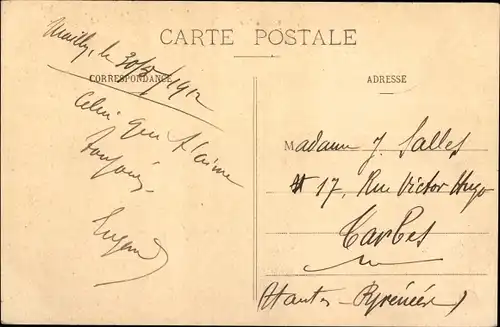 CARTE POSTALE
CORRESPONDANCE
ADRESSE
Neuilly, le 30/7/1912
Celui qui t'aime
toujours.
Eugène
Madame J. Salles
17, Rue Victor Hugo
Tarbes
(Hautes-Pyrénées)